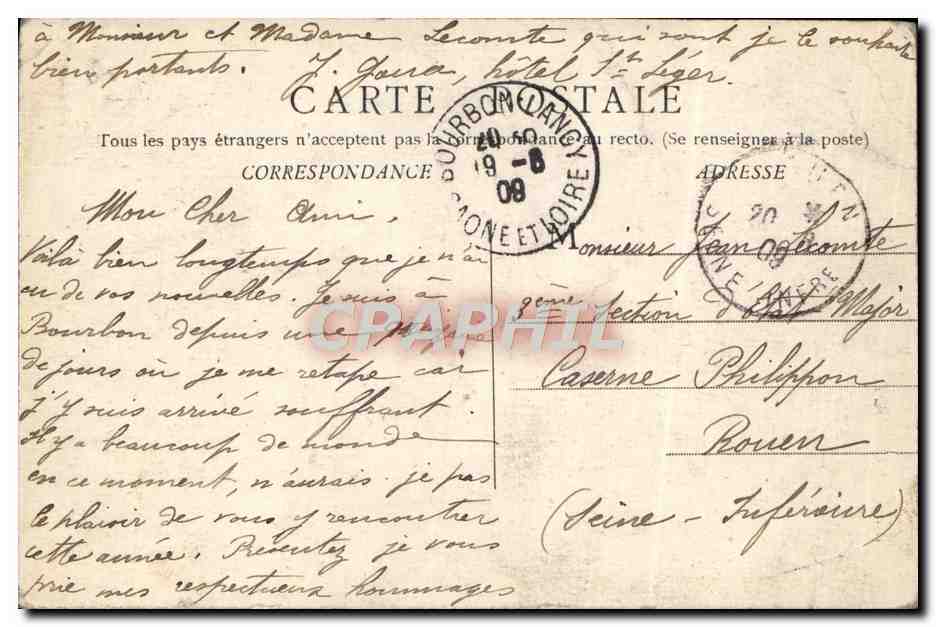 à Monsieur et Madame Lecomte qui sont je le souhaite
bien portants. J. hôtel St Léger.
CARTE POSTALE
Tous les pays étrangers n'acceptent pas la correspondance au recto. (Se renseigner à la poste)
CORRESPONDANCE
ADRESSE
BOURBON-LANCY
19 -8
09
SAONE ET LOIRE
ROUEN
20
09
SEINE INFRE
Mon Cher Ami.
Voilà bien longtemps que je n'ai
eu de vos nouvelles. Je suis à
Bourbon depuis une
de jours où je me retape car
j'y suis arrivé souffrant.
Il y a beaucoup de monde
en ce moment, n'aurais-je pas
le plaisir de vous y rencontrer
cette année. Présentez je vous
prie mes respectueux hommages
Monsieur Jean Lecomte
3ème Section d'État Major
Caserne Philippon
Rouen
(Seine-Inférieure)
CPAPHIL